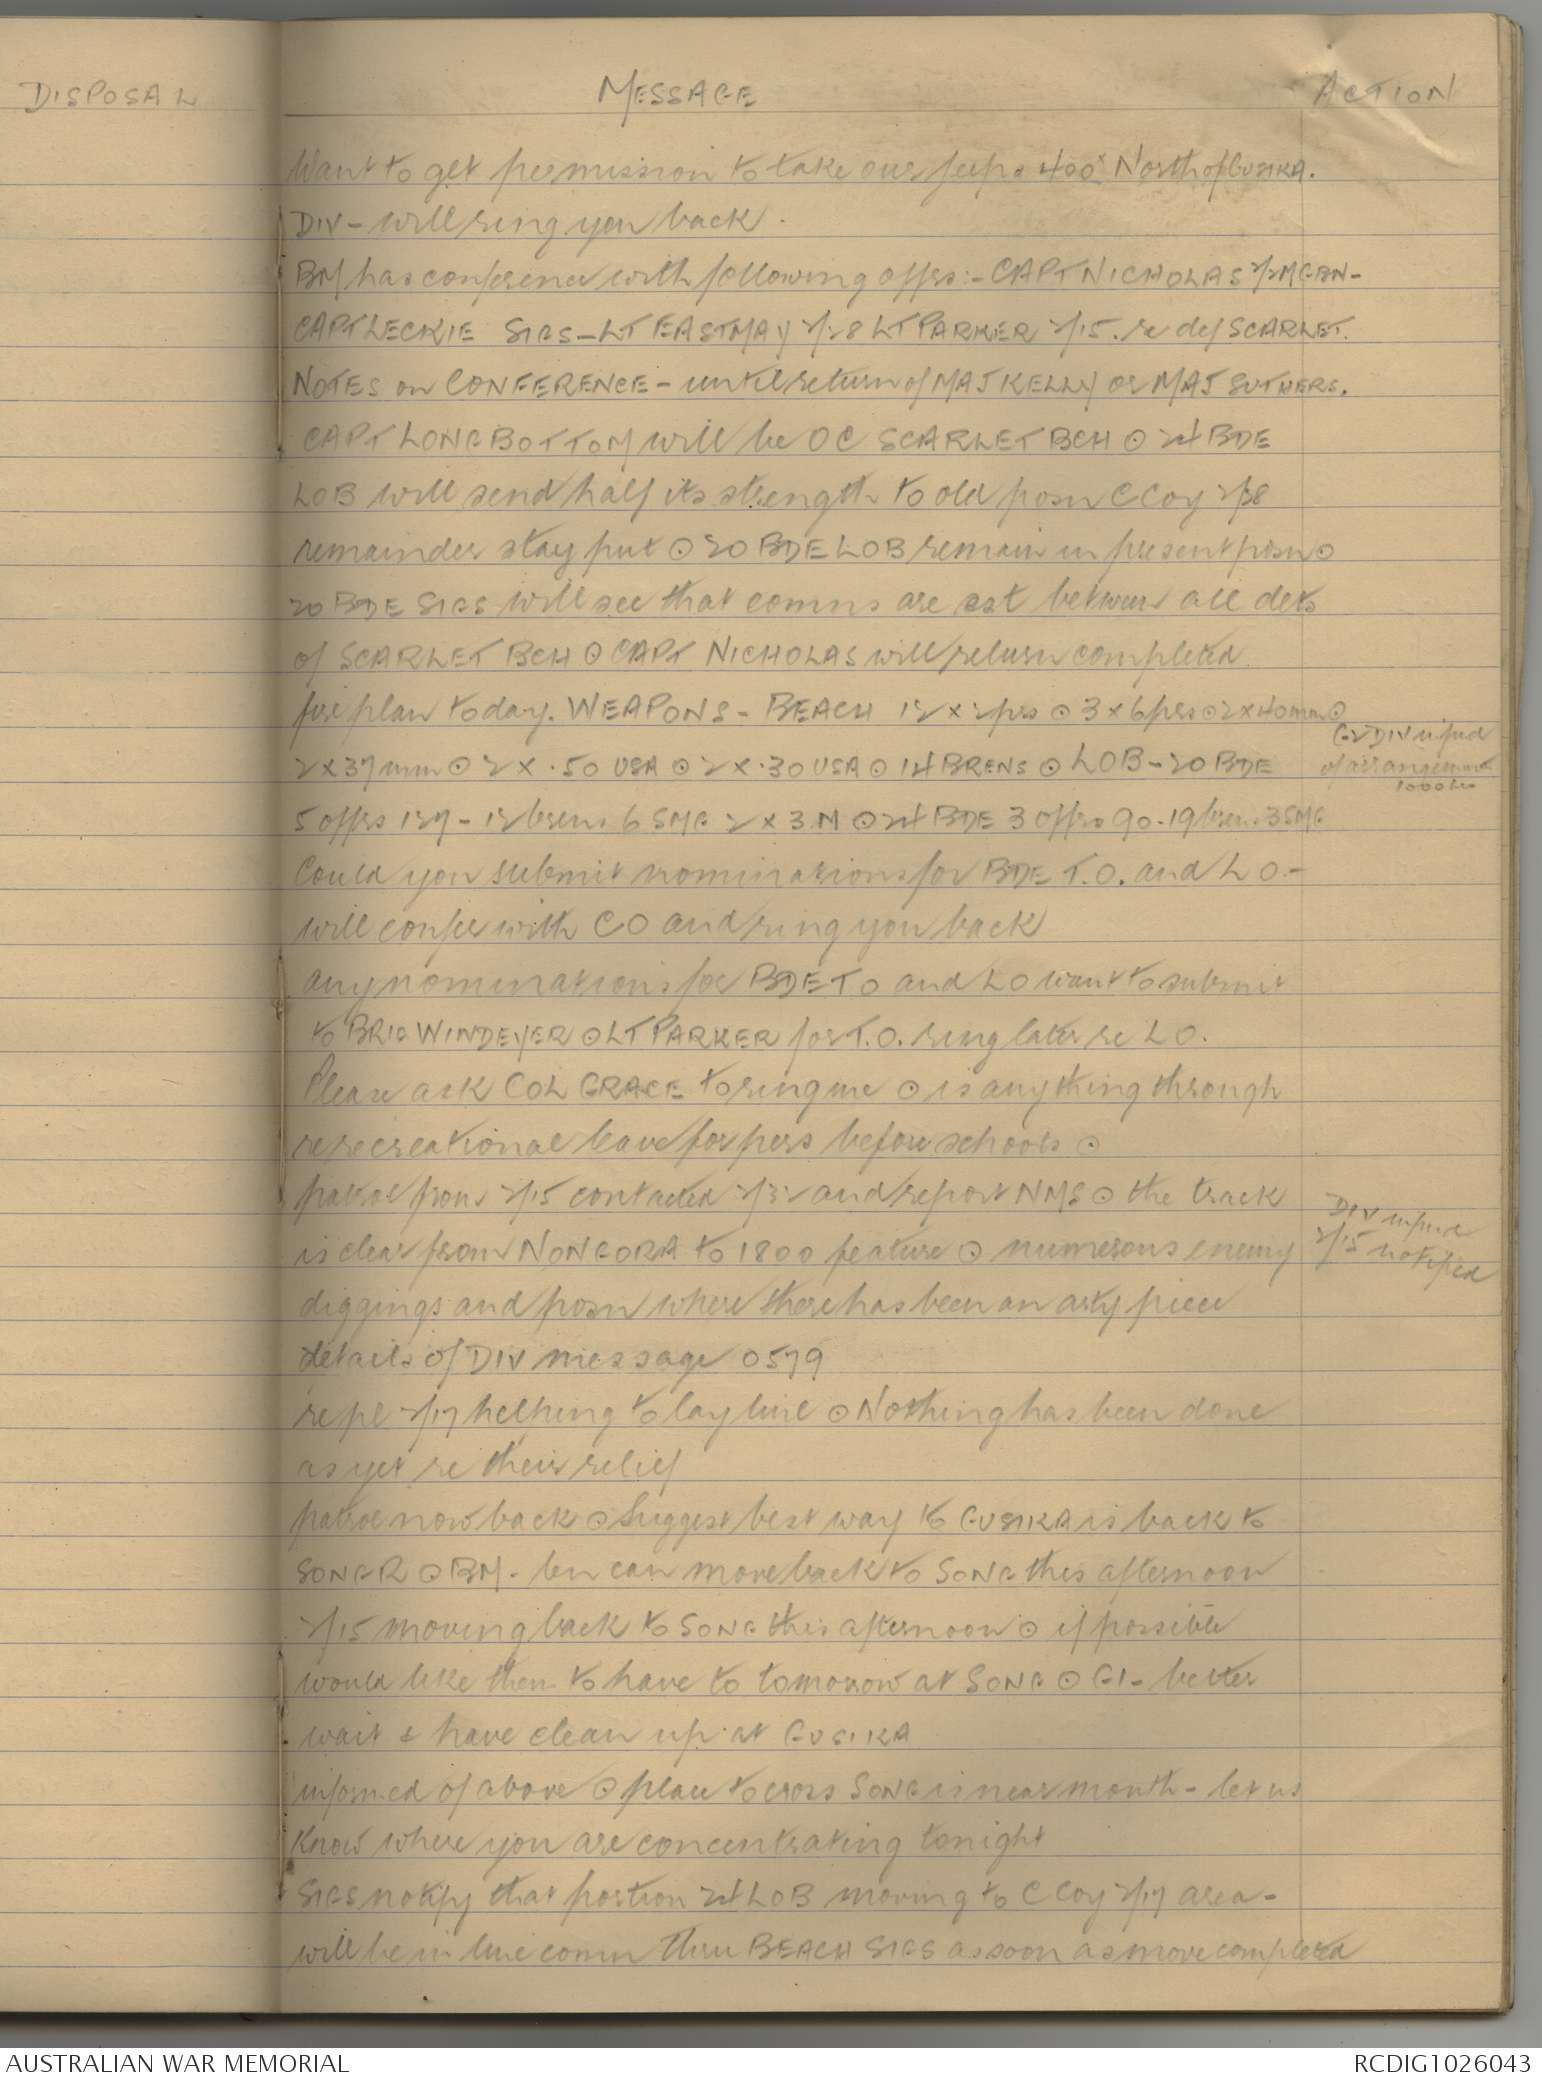 DISPOSAL
MESSAGE
ACTION
Want to get permission to take our jeeps 400x North of GUSIKA.
DIV - will ring you back.
BM has conference with following offrs:- CAPT NICHOLAS 2/2 MG BN -
CAPT LECKIE SIGS - LT EASTMAY 2/28 LT PARKER 2/15. re def SCARLET.
NOTES on CONFERENCE - until return of MAJ KELLY or MAJ SUTHERS.
CAPT LONGBOTTOM will be OC SCARLET BCH ⊙ 24 BDE
LOB will send half its strength to old posn C Coy 2/28
remainder stay put ⊙ 20 BDE LOB remain in present posn ⊙
20 BDE SIGS will see that comns are est between all dets
of SCARLET BCH ⊙ CAPT NICHOLAS will return completed
fire plan today. WEAPONS - BEACH 12 x 2prs ⊙ 3 x 6prs ⊙ 2 x 40mm ⊙
2 x 37 mm ⊙ 2 x .50 USA ⊙ 2 x .30 USA ⊙ 14 BRENS ⊙ LOB - 20 BDE
G2 DIV infmd
of arrangements
1000 hrs
5 offrs 127 - 12 brens 6 SMG 2 x 3.M ⊙ 24 BDE 3 offrs 90 - 19 brens 3 SMG
Could you submit nominations for BDE T.O. and LO -
will confer with CO and ring you back
any nominations for BDE TO and LO want to submit
to BRIG WINDEYER ⊙ LT PARKER for T.O. ring later re LO.
Please ask COL GRACE to ring me ⊙ is anything through
re recreational leave for pers before schools ⊙
patrol from 2/15 contacted 2/32 and report NMS ⊙ the track
is clear from NONGORA to 1800 feature ⊙ numerous enemy
DIV infmd
2/15 notified
diggings and posn where there has been an arty piece
details of DIV message 0579
re pl 2/17 helping to lay line ⊙ Nothing has been done
as yet re their relief
patrol now back ⊙ Suggest best way to GUSIKA is back to
SONG R ⊙ BM - bn can move back to SONG this afternoon
2/15 moving back to SONG this afternoon ⊙ if possible
would like them to have to tomorrow at SONG ⊙ G1 - better
wait & have clean up at GUSIKA
informed of above ⊙ place to cross SONG is near mouth - let us
know where you are concentrating tonight
SIGS notify that portion 24 LOB moving to C Coy 2/17 area -
will be in line comn thru BEACH SIGS as soon as move completed
AUSTRALIAN WAR MEMORIAL
RCDIG1026043